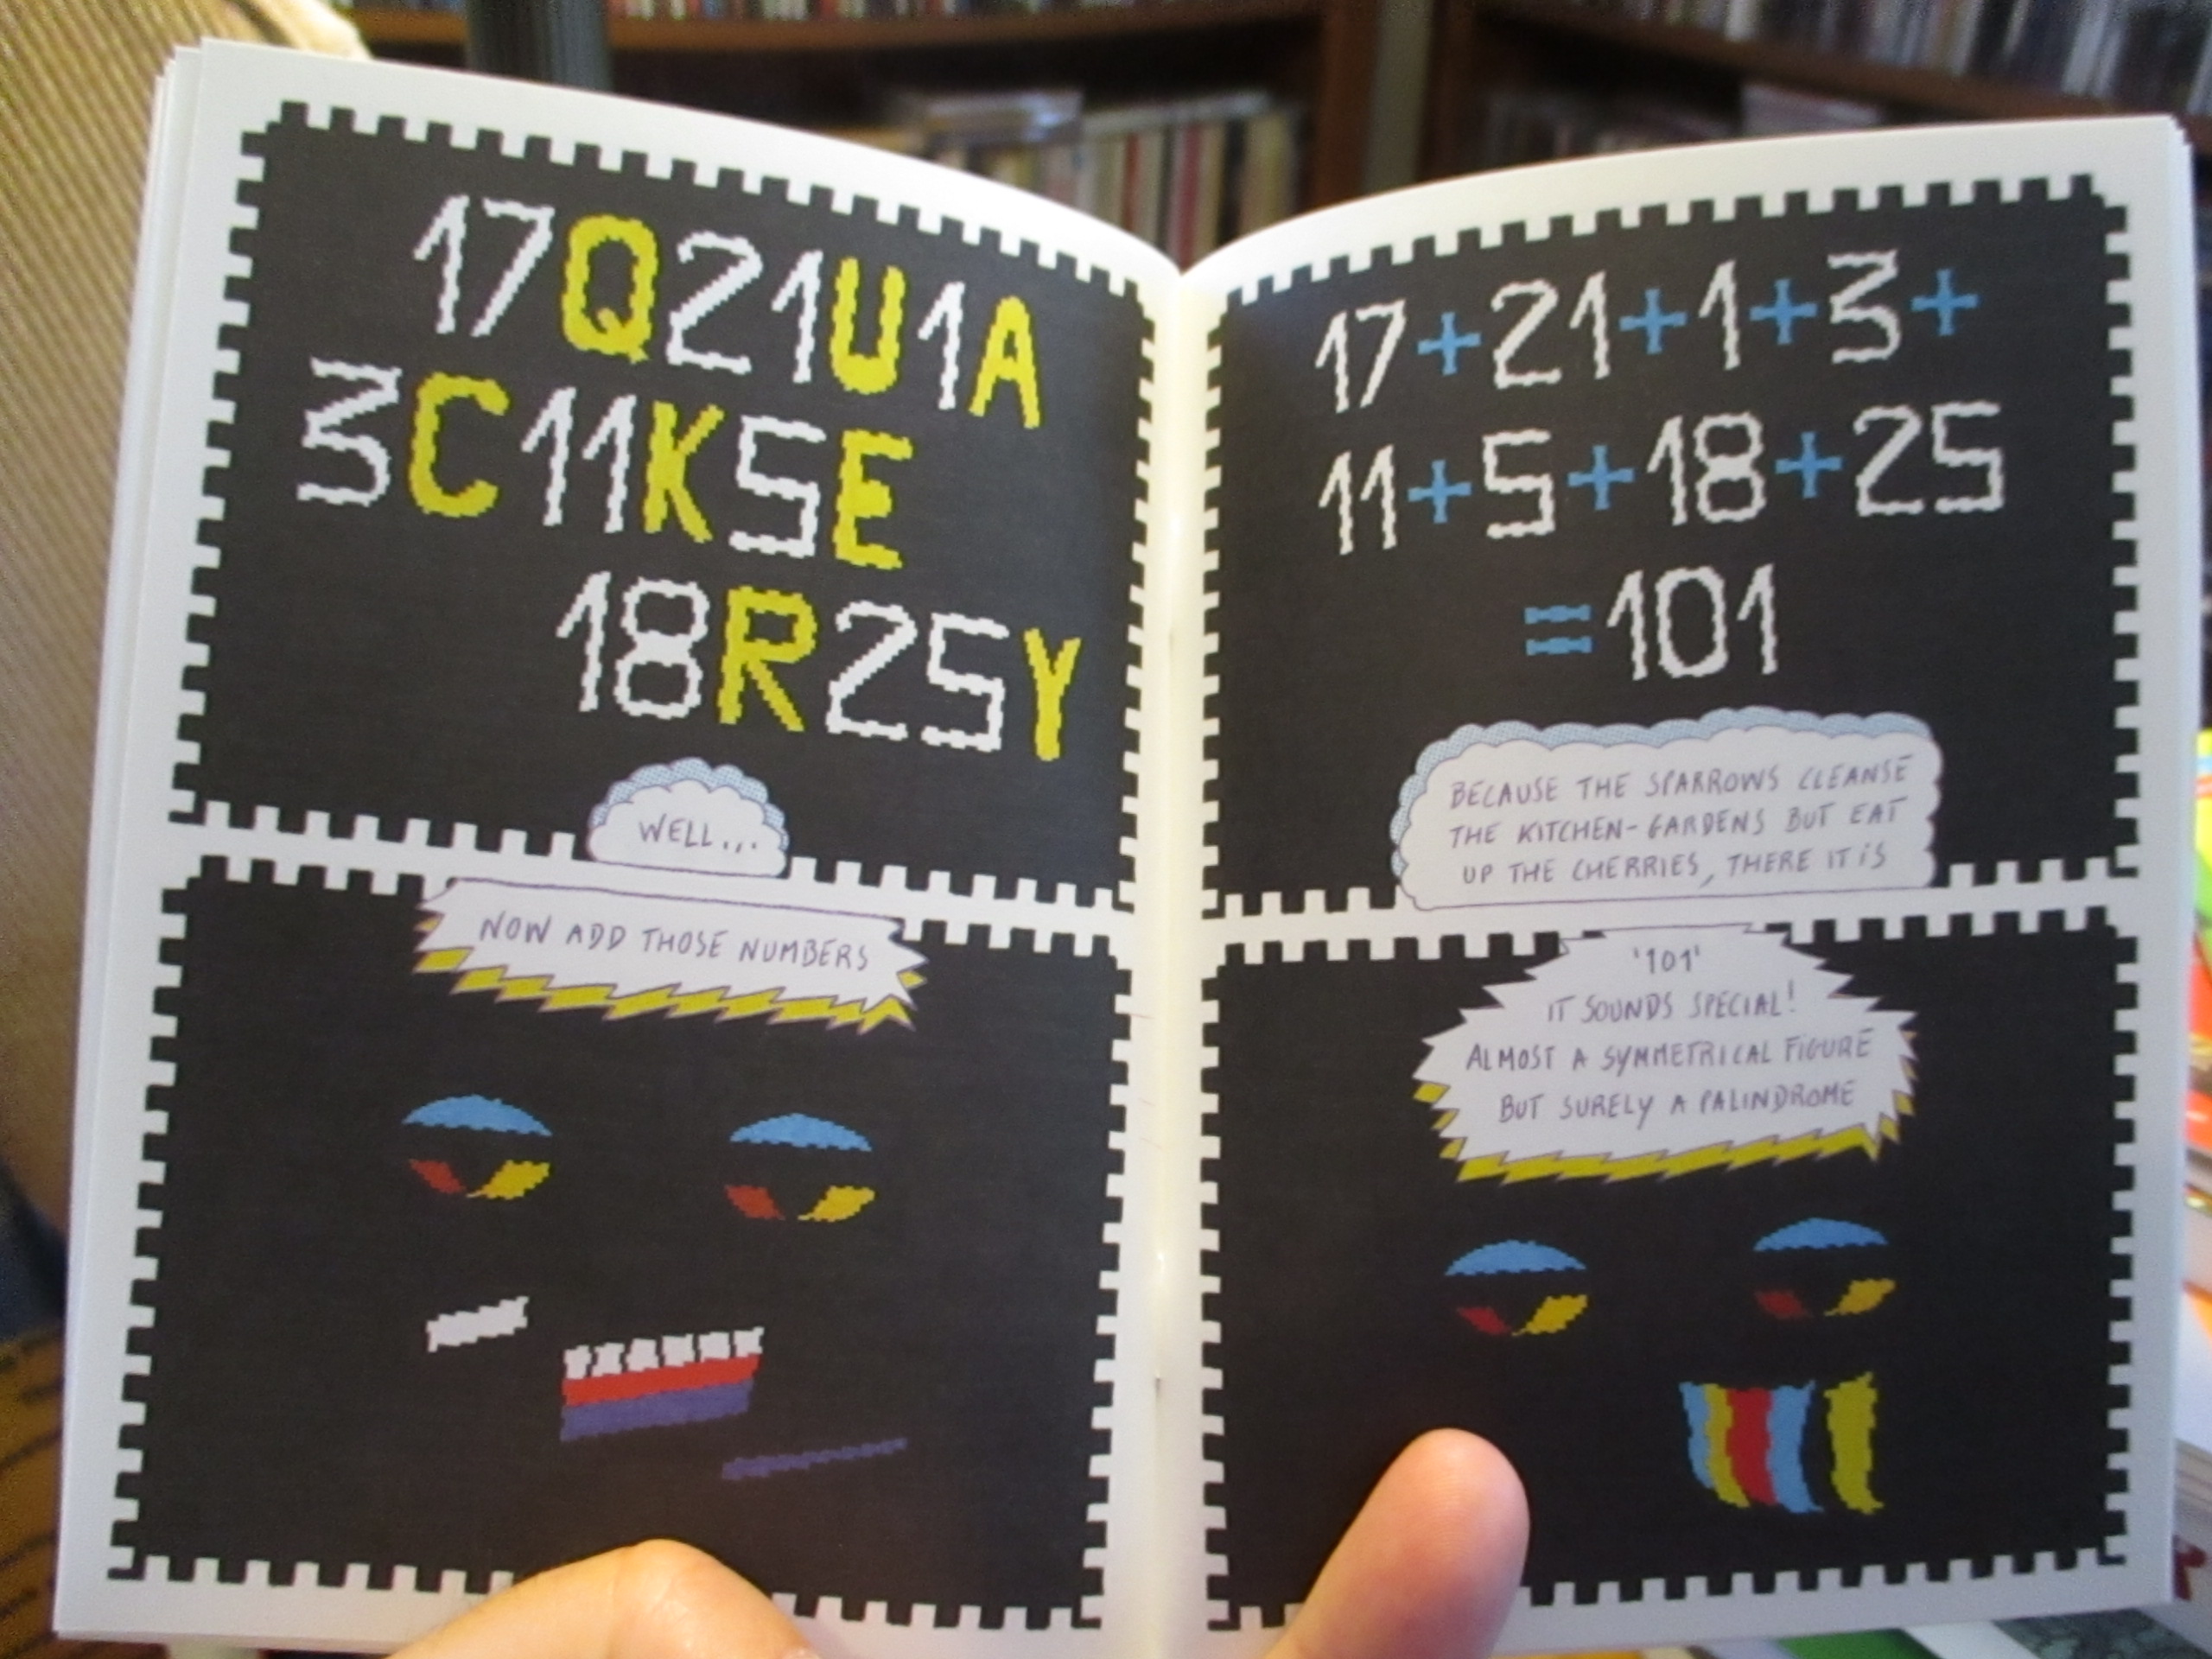 17Q21U1A
3C11K5E
18R25Y
WELL...
NOW ADD THOSE NUMBERS
17+21+1+3+
11+5+18+25
=101
BECAUSE THE SPARROWS CLEANSE
THE KITCHEN-GARDENS BUT EAT
UP THE CHERRIES, THERE IT IS
'101'
IT SOUNDS SPECIAL!
ALMOST A SYMMETRICAL FIGURE
BUT SURELY A PALINDROME